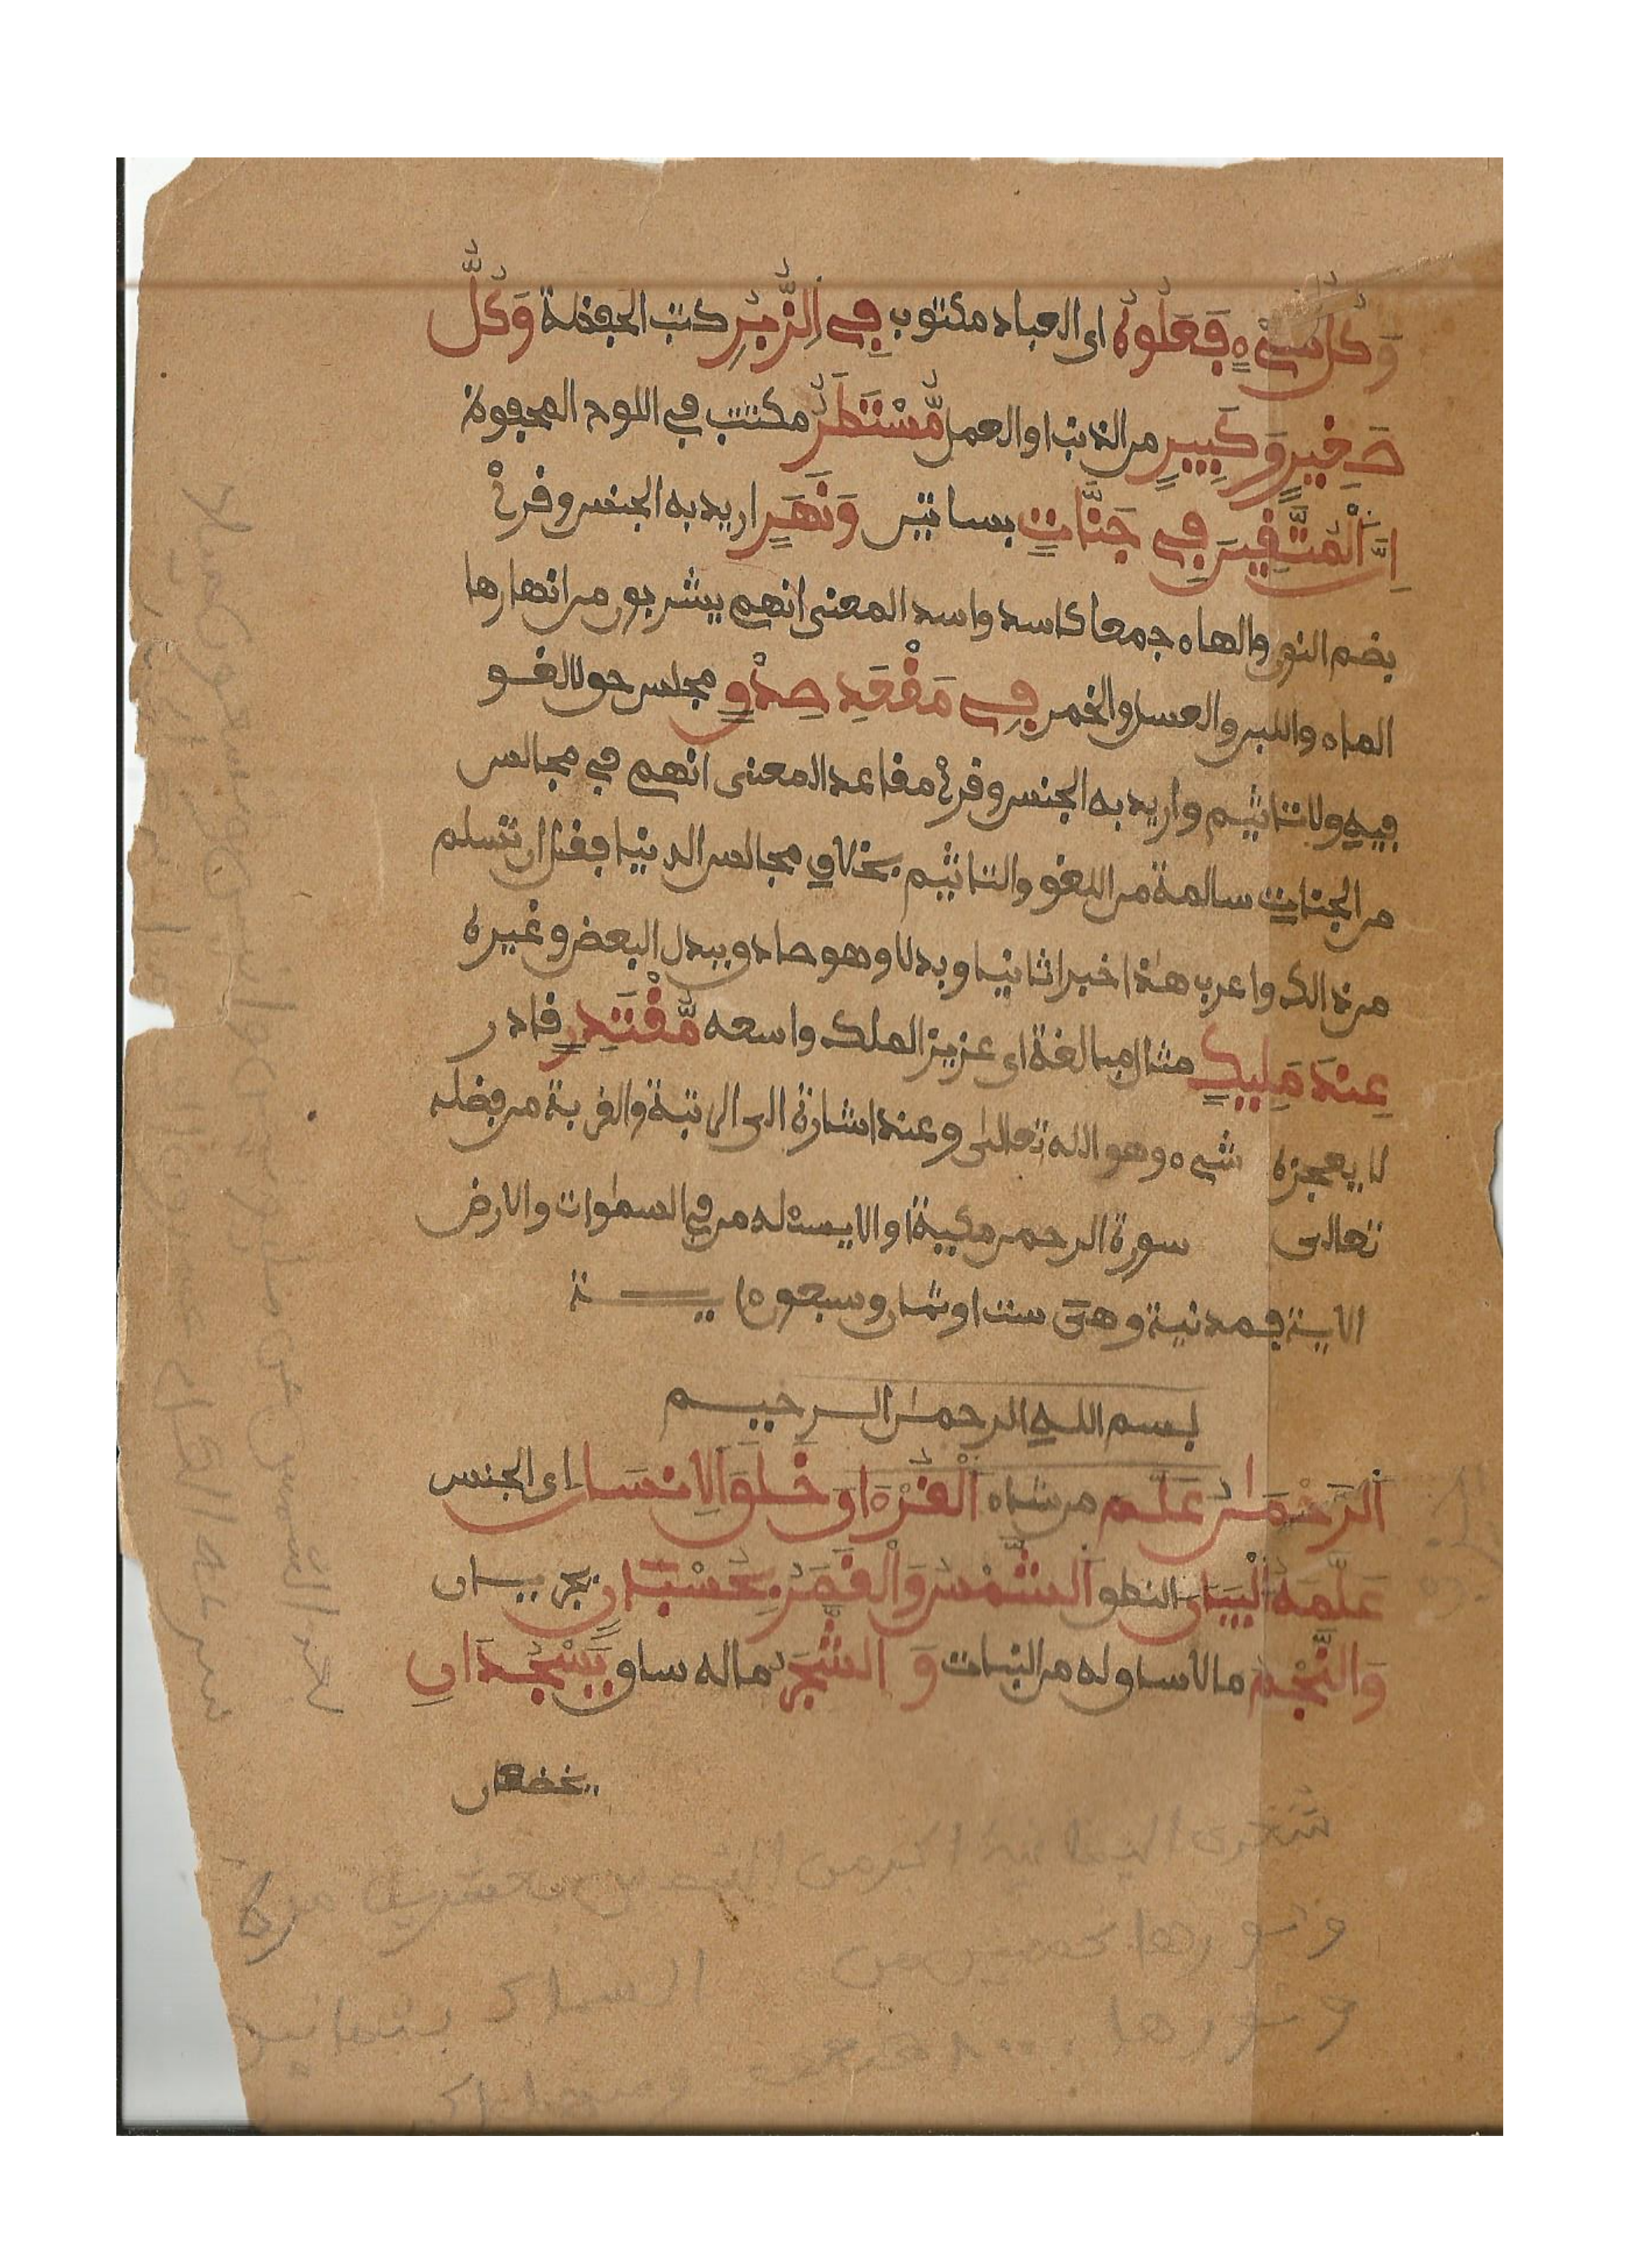 وَكُلُّ شَيْءٍ فَعَلُوهُ اى العباد مكتوب فِي اِ۬لزُّبُرِ كتب الحفظة وَكُلُّ
صَغِيرٍ وَكَبِيرٍ من الذنب او العمل مُّسْتَطَرٌ مكتتب في اللوح المحفوظ
اِنَّ اَ۬لْمُتَّقِينَ فِي جَنَّاتٍ بساتين وَنَهَرٍ اريد به الجنس وقرئ
بضم النون والهاء جمعا كاسد واسد المعنى انهم يشربون من انهارها
الماء واللبن والعسل والخمر فِي مَقْعَدِ صِدْقٍ مجلس حق لا لغو
فيه ولا تاثيم واريد به الجنس وقرئ مقاعد المعنى انهم في مجالس
من الجنات سالمة من اللغو والتاثيم بخلاف مجالس الدنيا فقل ان تسلم
من ذالك واعرب هاذا خبرا ثانيا وبدلا وهو صادق ببدل البعض وغيره
عِندَ مَلِيكٍ مثال مبالغة اى عزيز الملك واسعه مُّقْتَدِرٍ قادر
لا يعجزه شيء وهو الله تعالى وعند اشارة الى الرتبة والقربة من فضله
تعالى سورة الرحمن مكية او الا يسئله من في السماوات والارض
الاية فمدنية وهي ست او ثمان وسبعون اية
بسم الله الرحمن الرحيم
اَ۬لرَّحْمَٰنُ عَلَّمَ من شاء اَ۬لْقُرْءَانَ خَلَقَ اَ۬لِانسَانَ اى الجنس
عَلَّمَهُ اُ۬لْبَيَانَ النطق اَ۬لشَّمْسُ وَالْقَمَرُ بِحُسْبَانٍ يجريان
وَالنَّجْمُ ما لا ساق له من النبات وَالشَّجَرُ ما له ساق يَسْجُدَانِ
يخضعان
الشعرى اليمانية اكبر من الشمس بعشرين مرة
ونورها خمسين من
السماك
ونورها ٨٠٠٠